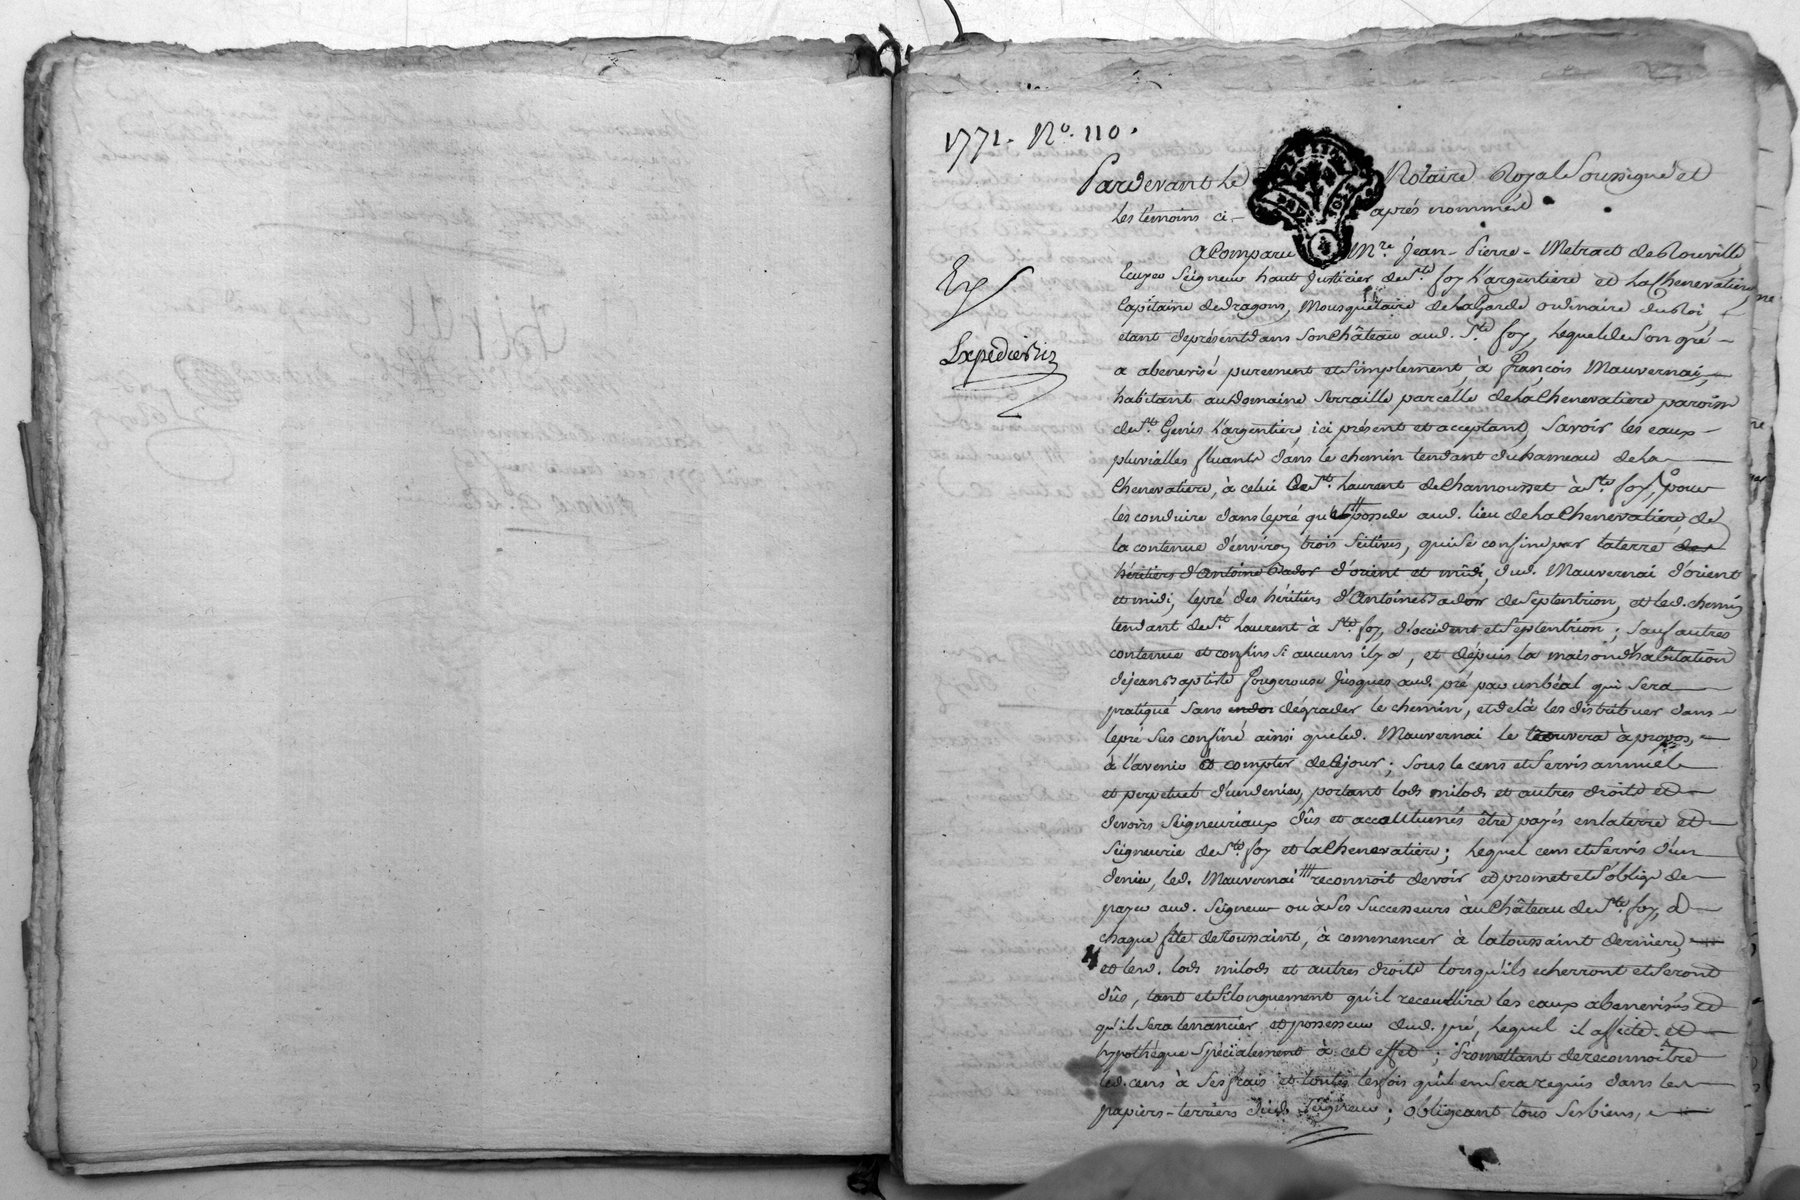 1771. No. 110.
Pardevant Le Notaire Royal Soussigné et
Les témoins ci- après nommés
A Comparu Mre. Jean-Pierre-Metract de Rouville
Ecuyer Seigneur haut Justicier de Ste. foy L'argentiere et La Chenevatiere
Capitaine de dragons, Mousquetaire de La Garde ordinaire du Roi,
étant de présent dans Son Château aud. Ste. foy, Lequel de Son gré
a abenevisé purement et Simplement, à françois Mauvernai,
habitant au Domaine parcelle de La Chenevatiere paroisse
de St. Genis L'argentiere, ici présent et acceptant, Savoir les eaux
pluvialles fluants dans le chemin tendant du hameau de La
Chenevatiere, à celui de St. Laurent de Chamousset à Ste. foy, pour
les conduire dans le pré qu'il possede aud. lieu de La Chenevatiere, de
la contenue d'environ trois Seitives, qui Se confine par la terre des
héritiers d'Antoine Bador d'orient et midi, dud. Mauvernai d'orient
et midi, le pré des héritiers d'Antoine Bador de Septentrion, et led. chemin
tendant de St. Laurent à Ste. foy, d'occident et Septentrion; Sauf autres
contenue et confins Si aucuns il y a, et dépuis la maison d'habitation
de Jean Baptiste fougerouse Jusques aud. pré par un béal qui Sera
pratiqué Sans dégrader le chemin, et de là les distribuer dans
le pré Sus confiné ainsi que led. Mauvernai le trouvera à propos,
à l'avenir et compter de ce jour; Sous le cens et Servis annuel
et perpetuel d'un denier, portant lods milods et autres droits et
devoirs Seigneuriaux dûs et accoutumés être payés en la terre et
Seigneurie de Ste. foy et La Chenevatiere; Lequel cens et Servis d'un
denier, led. Mauvernai reconnoit devoir et promet et S'oblige de
payer aud. Seigneur ou à Ses Successeurs au Château de Ste. foy, à
chaque fête de Toussaint, à commencer à la toussaint derniere,
et lesd. lods milods et autres droits lorsqu'ils echerront et Seront
dûs, tant et Si longuement qu'il receuillira les eaux abenevisés et
qu'il Sera tenancier et possesseur dud. pré, Lequel il affecte et
hypothèque Spécialement à cet effet; Promettant de reconnoître
led. cens à Ses frais et toutes les fois qu'il en Sera requis dans les
papiers-terriers dud. Seigneur; obligeant tous Ses biens,
Exp
Expedié